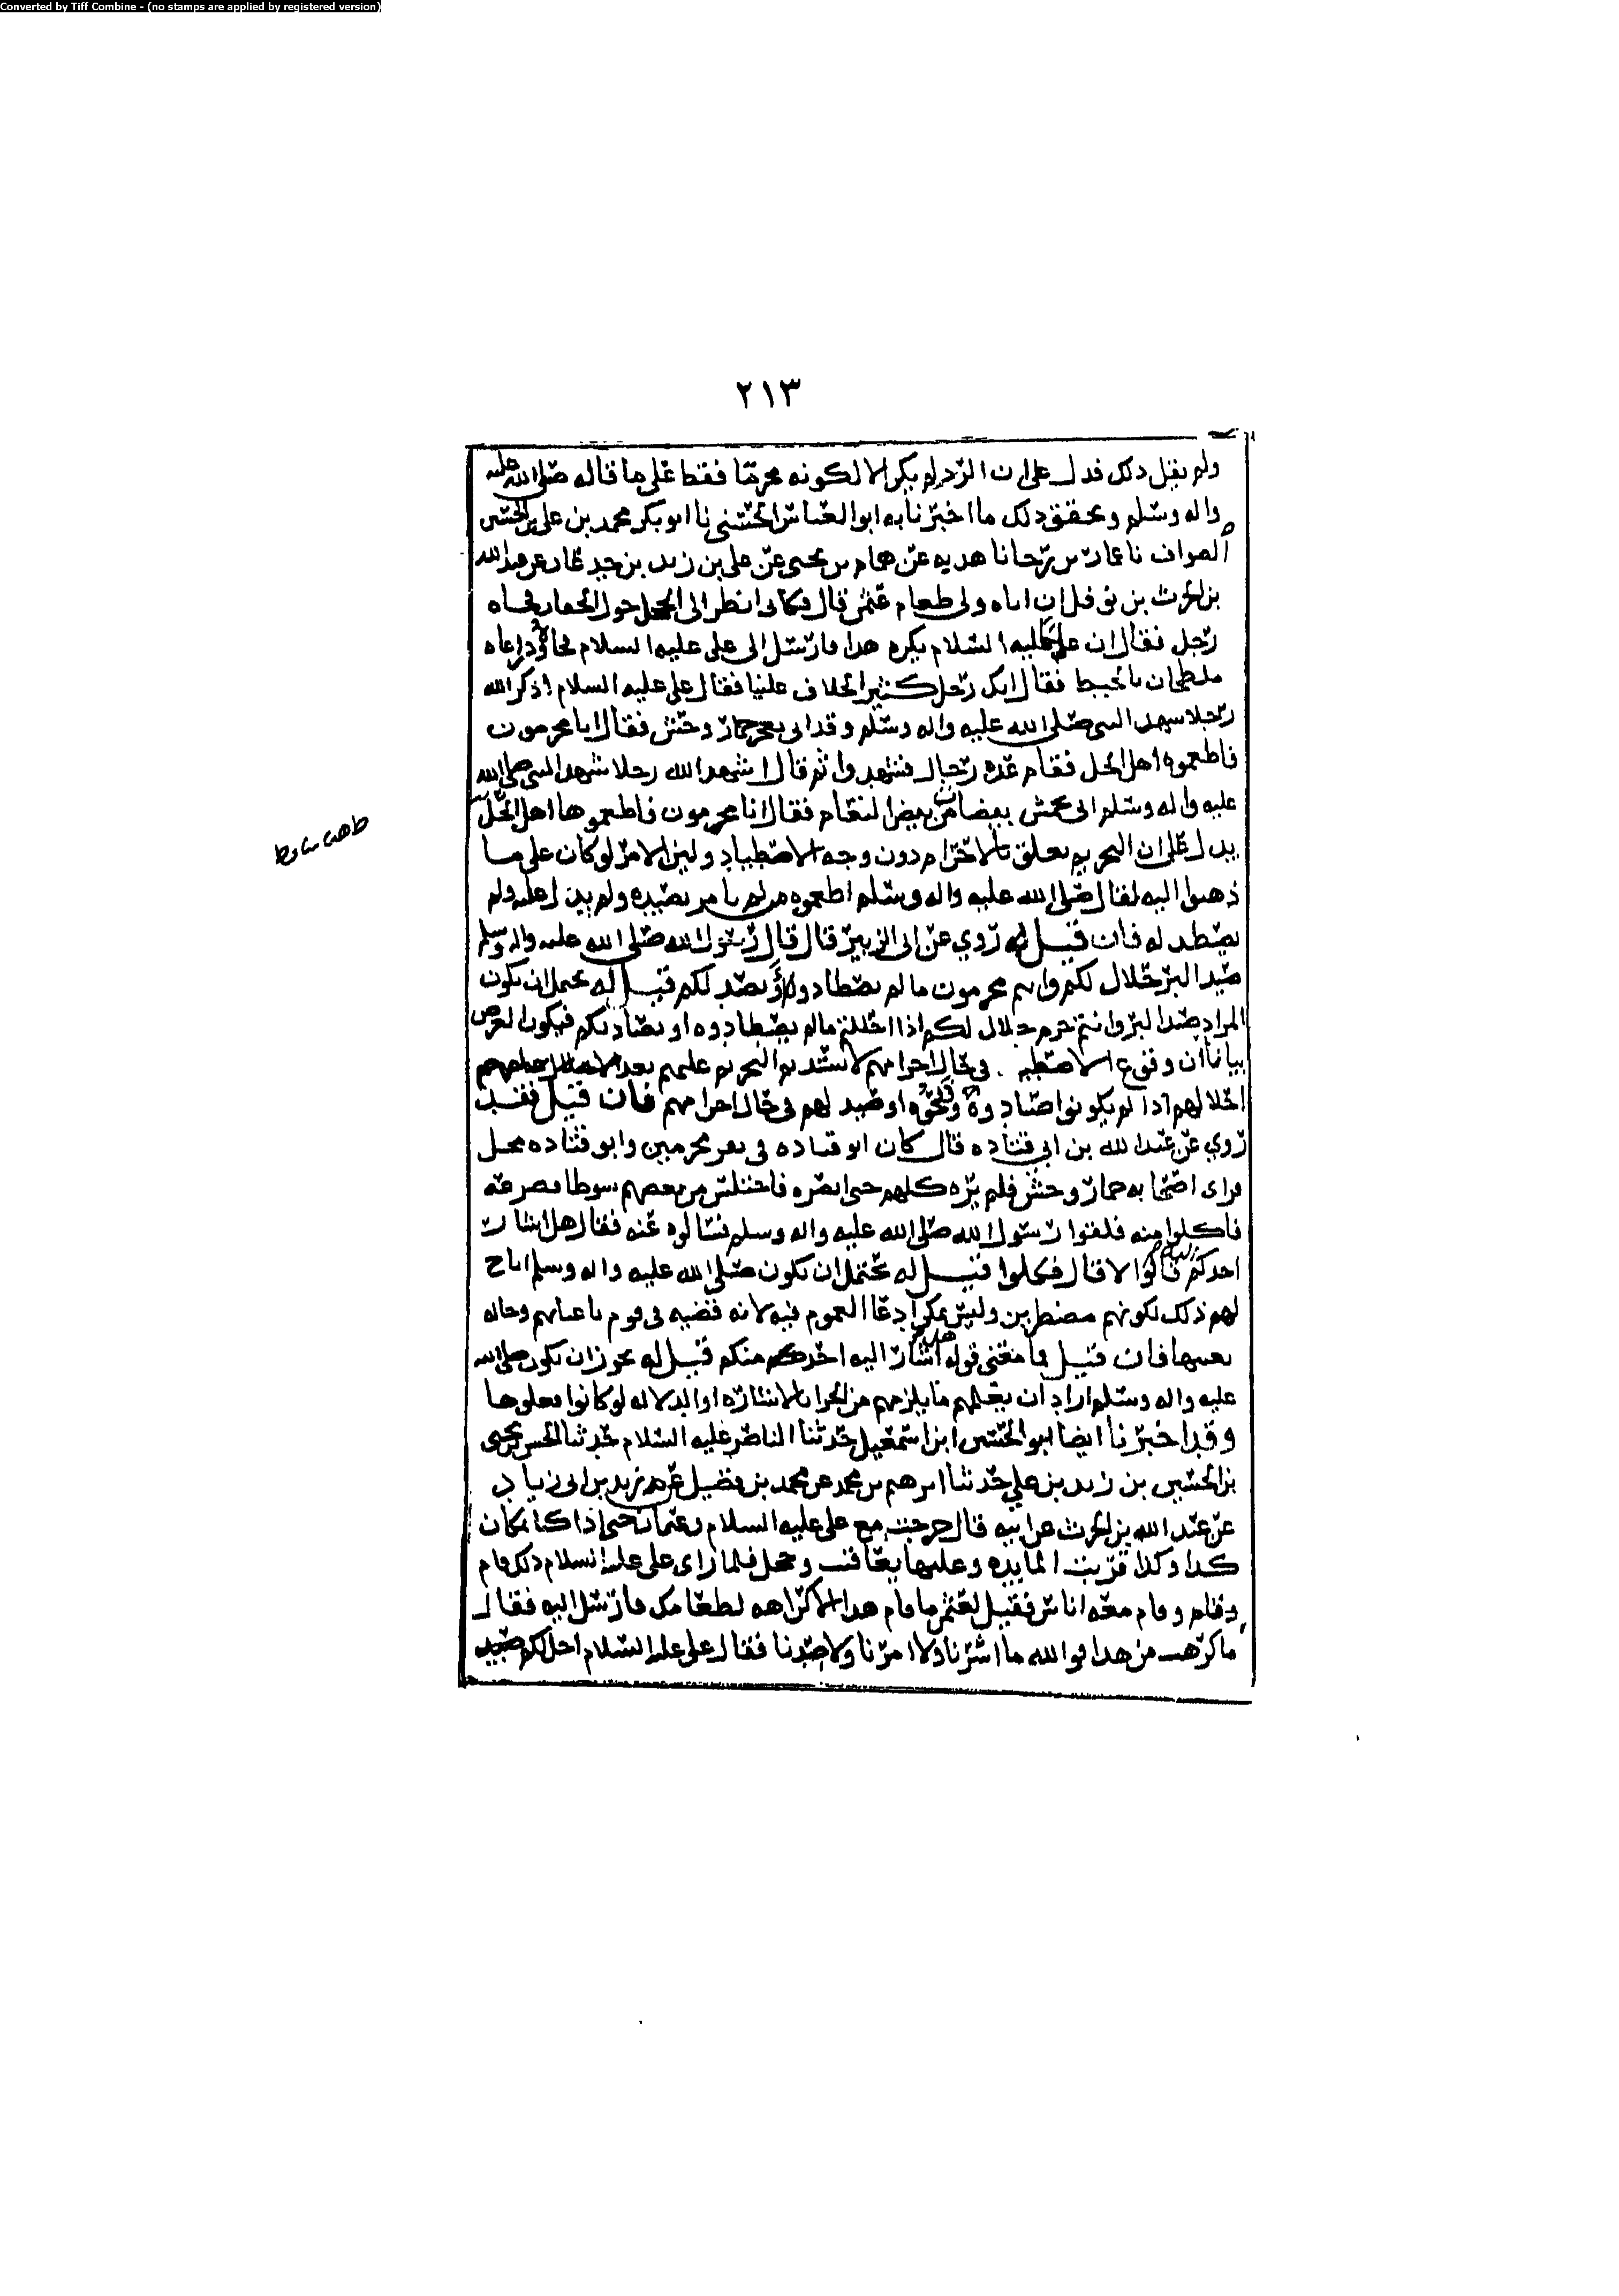 Converted by Tiff Combine - (no stamps are applied by registered version)
٢١٣
ولم يقبل ذلك فدل على ان الرد لم يكن الا لكونه محرما فقط على ما قاله صلى الله عليه
واله وسلم ويحقق ذلك ما اخبرنا به ابو العباس الحسني نا ابو بكر محمد بن علي بن الحسين
الصواف نا عمار بن رجا نا هدبه عن همام بن يحيى عن علي بن زيد بن جدعان عن عبدالله
بن الحرث بن نوفل ان اباه ولي طعام عثمن قال فكاني انظر الى الحجل حول الجفان فجاه
رجل فقال ان عليا عليه السلام يكره هذا فارسل الى علي عليه السلام فجاؤه وذراعاه
ملطخان بالخبط فقال انك رجل كثير الخلاف علينا فقال علي عليه السلام اذكر الله
رجلا شهد النبي صلى الله عليه واله وسلم وقد اتي بعجز حمار وحش فقال انا محرمون
فاطعموه اهل الحل فقام عده رجال فشهدوا ثم قال اشهد الله رجلا شهد النبي صلى الله
عليه واله وسلم اتي بخمس بيضات من بيض النعام فقال انا محرمون فاطعموها اهل الحل
يدل على ان التحريم تعلق بالاحرام دون وجه الاصطياد وليس الامر لو كان على ما
ذهبوا اليه لقال صلى الله عليه واله وسلم اطعموه من لم يامر بصيده ولم يدل عليه ولم
يصطد له فان قيل له روي عن ابي الزبير قال قال رسول الله صلى الله عليه واله وسلم
صيد البر حلال لكم وانتم محرمون ما لم تصطادوه او يصد لكم قيل له يحتمل ان يكون
المراد صيد البر وانتم حرم حلال لكم اذا احللتم مالم تصطادوه او يصاد لكم فيكون الغرض
بيانا ان وقوع الاصطيـ في حال احرامهم لا يستديم التحريم عليهم بعد
احلالهم اذا لم يكونوا صادوه او صيد لهم في حال احرامهم فان قيل فقد
روي عن عبد الله بن ابي قتاده قال كان ابو قتاده في نفر محرمين وابو قتاده محل
فراى اصحابه حمار وحش فلم يره كلهم حتى ابصره فاختلس من بعضهم سوطا فصرعه
فاكلوا منه فلقوا رسول الله صلى الله عليه واله وسلم فسالوه عنه فقال هل اشارت
احدكم اليه قالوا لا قال فكلوا قيل له يحتمل ان يكون صلى الله عليه واله وسلم اباح
لهم ذلك لكونهم مضطرين وليس يمكن ادعا العموم فيه لانه قضيه في قوم باعيانهم وحاله
بعينها فان قيل فما معنى قوله هل اشار اليه احد منكم قيل له يجوز ان يكون صلى الله
عليه واله وسلم اراد ان يعلمهم ما يلزمهم من الجزا بالاشاره او الدلاله لو كانوا فعلوها
وقد اخبرنا ايضا ابو الحسين ابن اسمعيل حدثنا الناصر عليه السلام حدثنا الحسن بن يحيى
بن الحسين بن زيد بن علي حدثنا ابرهيم بن محمد عن محمد بن فضيل عن يزيد بن ابي زياد
عن عبد الله بن الحرث عن ابيه قال خرجت مع علي عليه السلام وعثمان حتى اذا كنا بمكان
كذا وكذا قربت المايده وعليها يعاقب وحجل فلما راى علي عليه السلام ذلك قام
وقام معه اناس فقيل لعثمن ما قام هذا الا كراهه لطعامك فارسل اليه فقال
ما كرهت من هذا فوالله ما اشرنا ولا امرنا ولا صدنا فقال علي عليه السلام احل لكم صيد